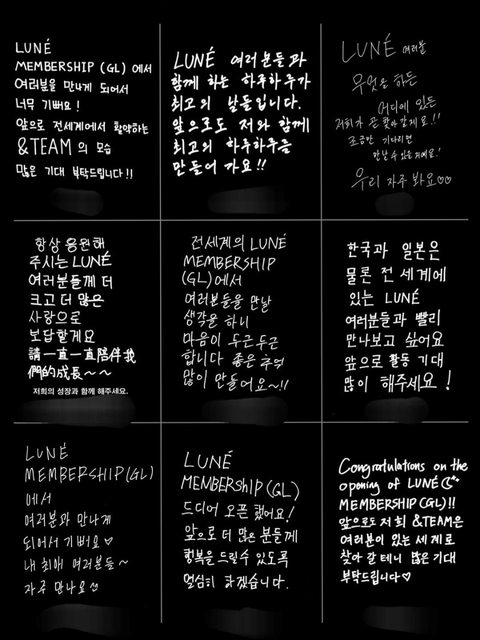 LUNÉ
MEMBERSHIP (GL) 에서
여러분을 만나게 되어서
너무 기뻐요!
앞으로 전세계에서 활약하는
&TEAM 의 모습
많은 기대 부탁드립니다!!
LUNÉ 여러분들과
함께 하는 하루하루가
최고의 날들입니다.
앞으로도 저와 함께
최고의 하루하루를
만들어 가요!!
LUNÉ 여러분
무엇을 하든
어디에 있든
저희가 곧 찾아갈게요!!
조금만 기다리면
만날 수 있을거예요!
우리 자주 봐요♡♡
항상 응원해
주시는 LUNÉ
여러분들께 더
크고 더 많은
사랑으로
보답할게요
請一直一直陪伴我
們的成長~~
저희의 성장과 함께 해주세요.
전세계의 LUNÉ
MEMBERSHIP
(GL)에서
여러분들을 만날
생각을 하니
마음이 두근두근
합니다 좋은 추억
많이 만들어요~!!
한국과 일본은
물론 전 세계에
있는 LUNÉ
여러분들과 빨리
만나보고 싶어요
앞으로 활동 기대
많이 해주세요!
LUNÉ
MEMBERSHIP(GL)
에서
여러분과 만나게
되어서 기뻐요♡
내 최애 여러분들~
자주 만나요
LUNÉ
MENBERShIP (GL)
드디어 오픈 했어요!
앞으로 더 많은 분들께
행복을 드릴 수 있도록
열심히 하겠습니다.
Congratulations on the
opening of LUNÉ
MEMBERSHIP(GL)!!
앞으로도 저희 &TEAM은
여러분이 있는 세계로
찾아 갈 테니 많은 기대
부탁드립니다♡